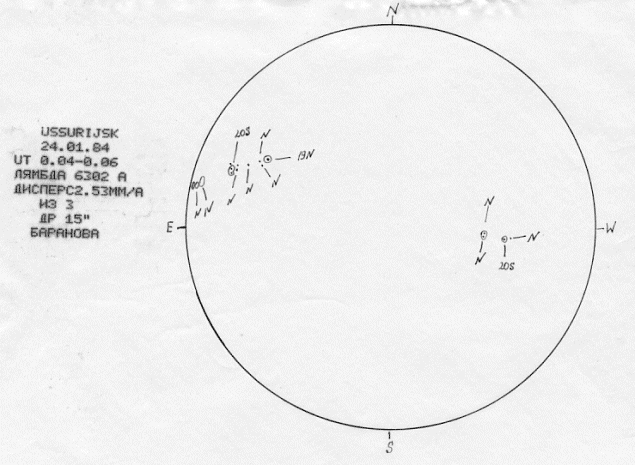 USSURIJSK
24.01.84
UT 0.04-0.06
ЛЯМБДА 6302 А
ДИСПЕРС2.53ММ/А
ИЗ 3
ДР 15"
БАРАНОВА
N
20S
N
19N
N
N
N
N N
E
W
N
N
N
20S
S